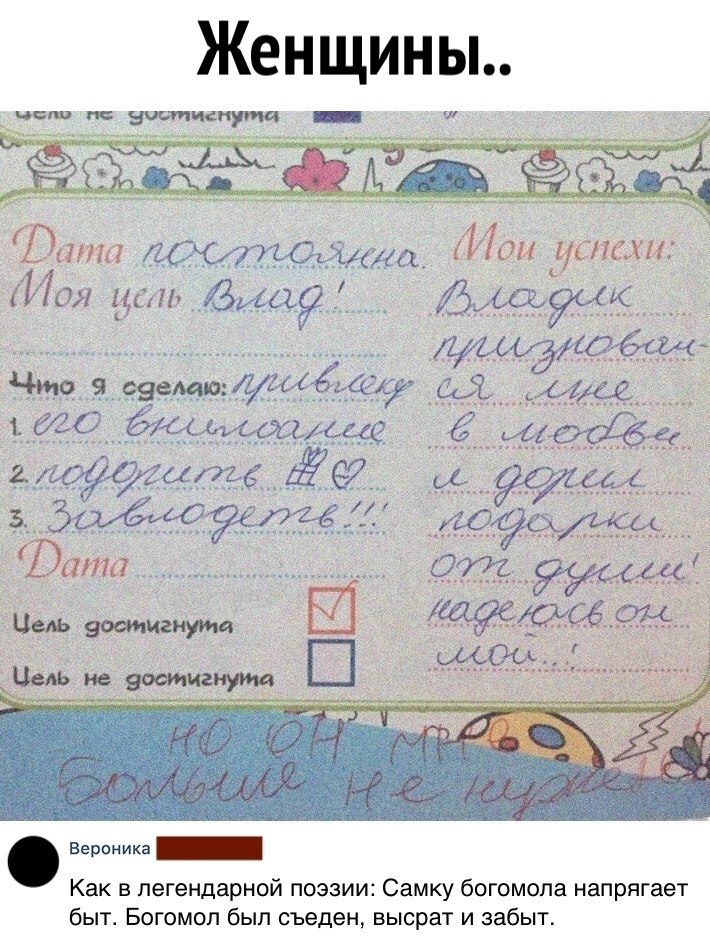 Женщины..
Цель не достигнута
Дата постоянна.
Моя цель Влад!
Что я сделаю: привлеку
1. его внимоание
2. подорить
3. Завлодеть!!!
Дата
Цель достигнута
Цель не достигнута
Мои успехи:
Владик
признован-
ся мне
в любви
и дорил
подарки
от души!
надеюсь он
мой..!
но он мне
больше не нужен
Вероника
Как в легендарной поэзии: Самку богомола напрягает
быт. Богомол был съеден, высрат и забыт.